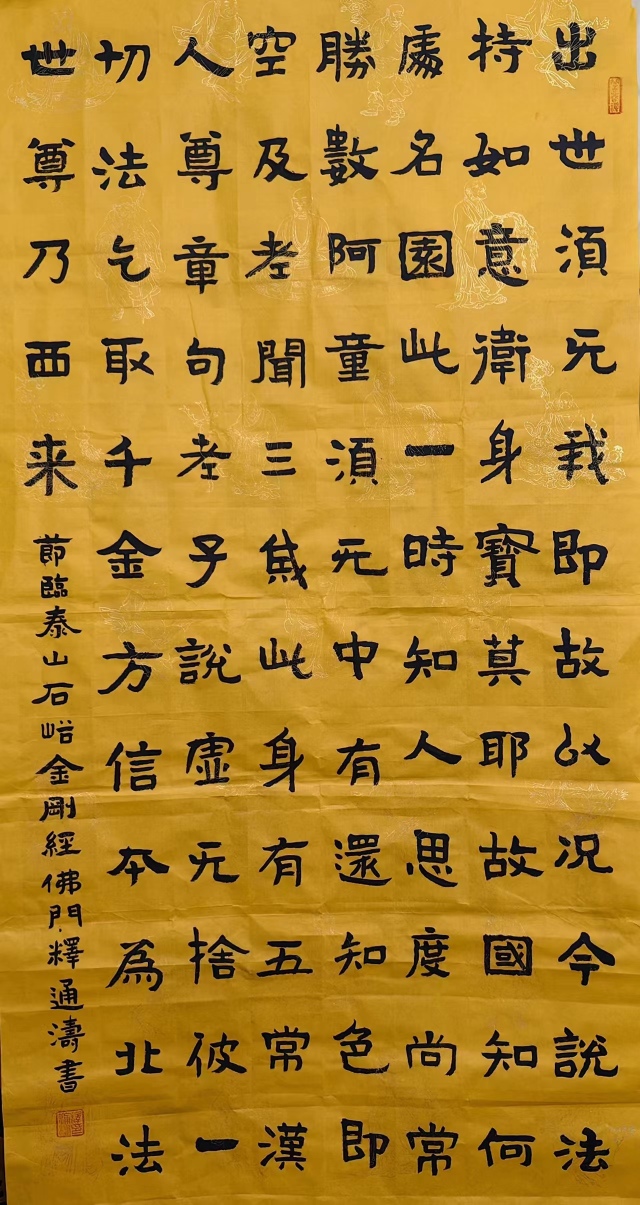 出世須无我即故以况今説法
持如意衛身寶莫耶故國知何
處名園此一時知人思度尚常
勝數阿童須无中有還知色即
空及孝聞三歲此身有五常漢
人尊章句孝子說虛无捨彼一
切法乞取千金方信本為北法
世尊乃西来
節臨泰山石峪金剛經佛門釋通濤書